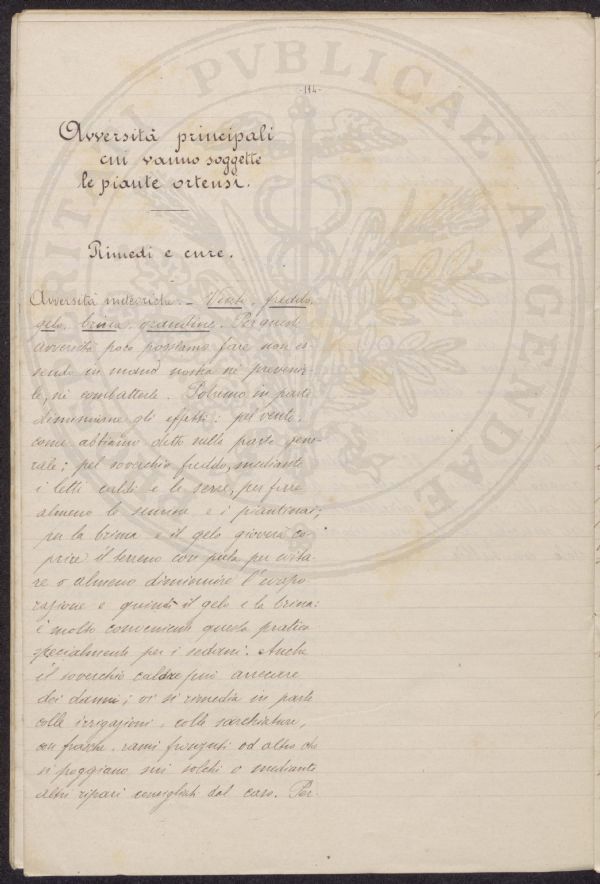 -114-
Avversità principali
cui vanno soggette
le piante ortensi.
Rimedi e cure.
Avversità meteoriche. - Vento, freddo,
gelo, brina, grandine. Per queste
avversità poco possiamo fare non es-
sendo in mano nostra nè prevenir-
le, nè combatterle. Potremo in parte
diminuirne gli effetti: pel vento,
come abbiamo detto nella parte gene-
rale; pel soverchio freddo, mediante
i letti caldi e le serre, per fare
almeno le semine e i piantinai;
per la brina e il gelo gioverà co-
prire il terreno con paglia per evita-
re o almeno diminuire l'evapo-
razione e quindi il gelo e la brina:
è molto conveniente questa pratica
specialmente per i sedani. Anche
il soverchio calore può arrecare
dei danni; vi si rimedia in parte
colle irrigazioni, colle sarchiature,
con frasche, rami fronzuti od altro che
si poggiano sui solchi o mediante
altri ripari consigliati dal caso. Per-
PVBLICAE
AVGENDAE